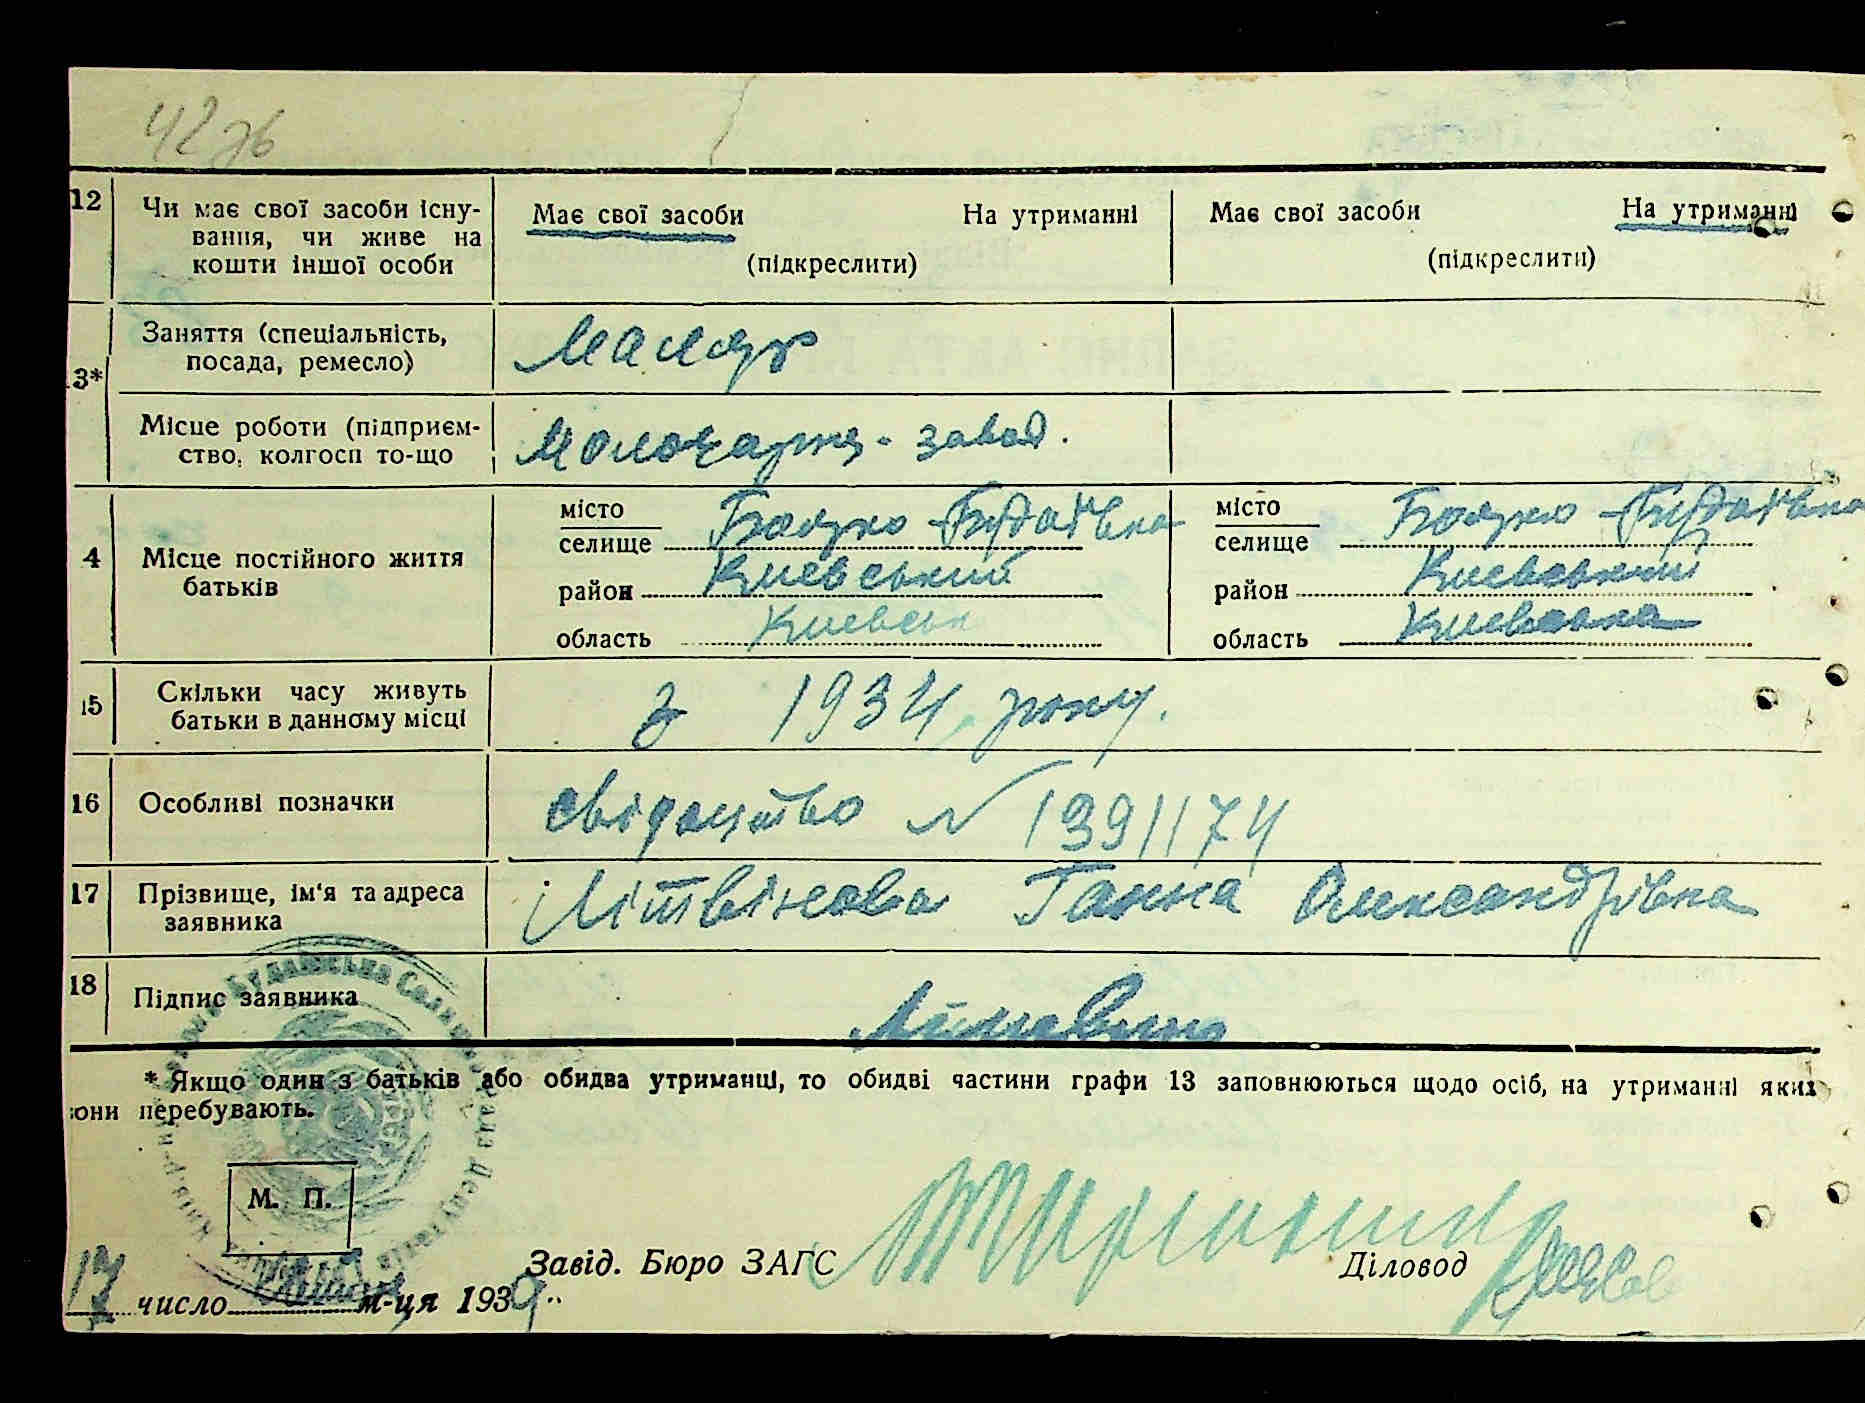 42 зв
12 Чи має свої засоби існу- Має свої засоби На утриманні Має свої засоби На утриманні
вання, чи живе на
кошти іншої особи (підкреслити) (підкреслити)
Заняття (спеціальність, Маляр
посада, ремесло)
3*
Місце роботи (підприєм- завод.
ство, колгосп то-що
місто Боярко-Будаївка місто Боярко-Будаївка
селище селище
4 Місце постійного життя
батьків район Киевський район Киевський
область Киевськ область Киевська
15 Скільки часу живуть з 1934 року.
батьки в данному місці
16 Особливі позначки свідоцтво № 1391174
17 Прізвище, ім'я та адреса Літвінова Ганна Олександрівна
заявника
18 Підпис заявника
* Якщо один з батьків або обидва утриманці, то обидві частини графи 13 заповнюються щодо осіб, на утриманні яких
вони перебувають.
Будаївська Селищна Рада Депутатів
М. П.
Завід. Бюро ЗАГС Діловод
17 число м-ця 1939